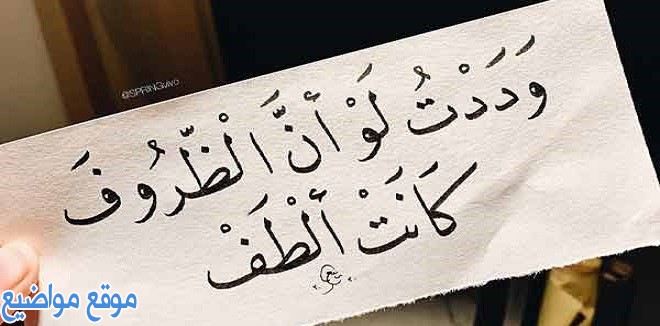 @SPRINGvivo
وَدَدْتُ لَوْ أَنَّ الْظّرُوفَ
كَانَتْ أَلْطَفْ
موقع مواضيع